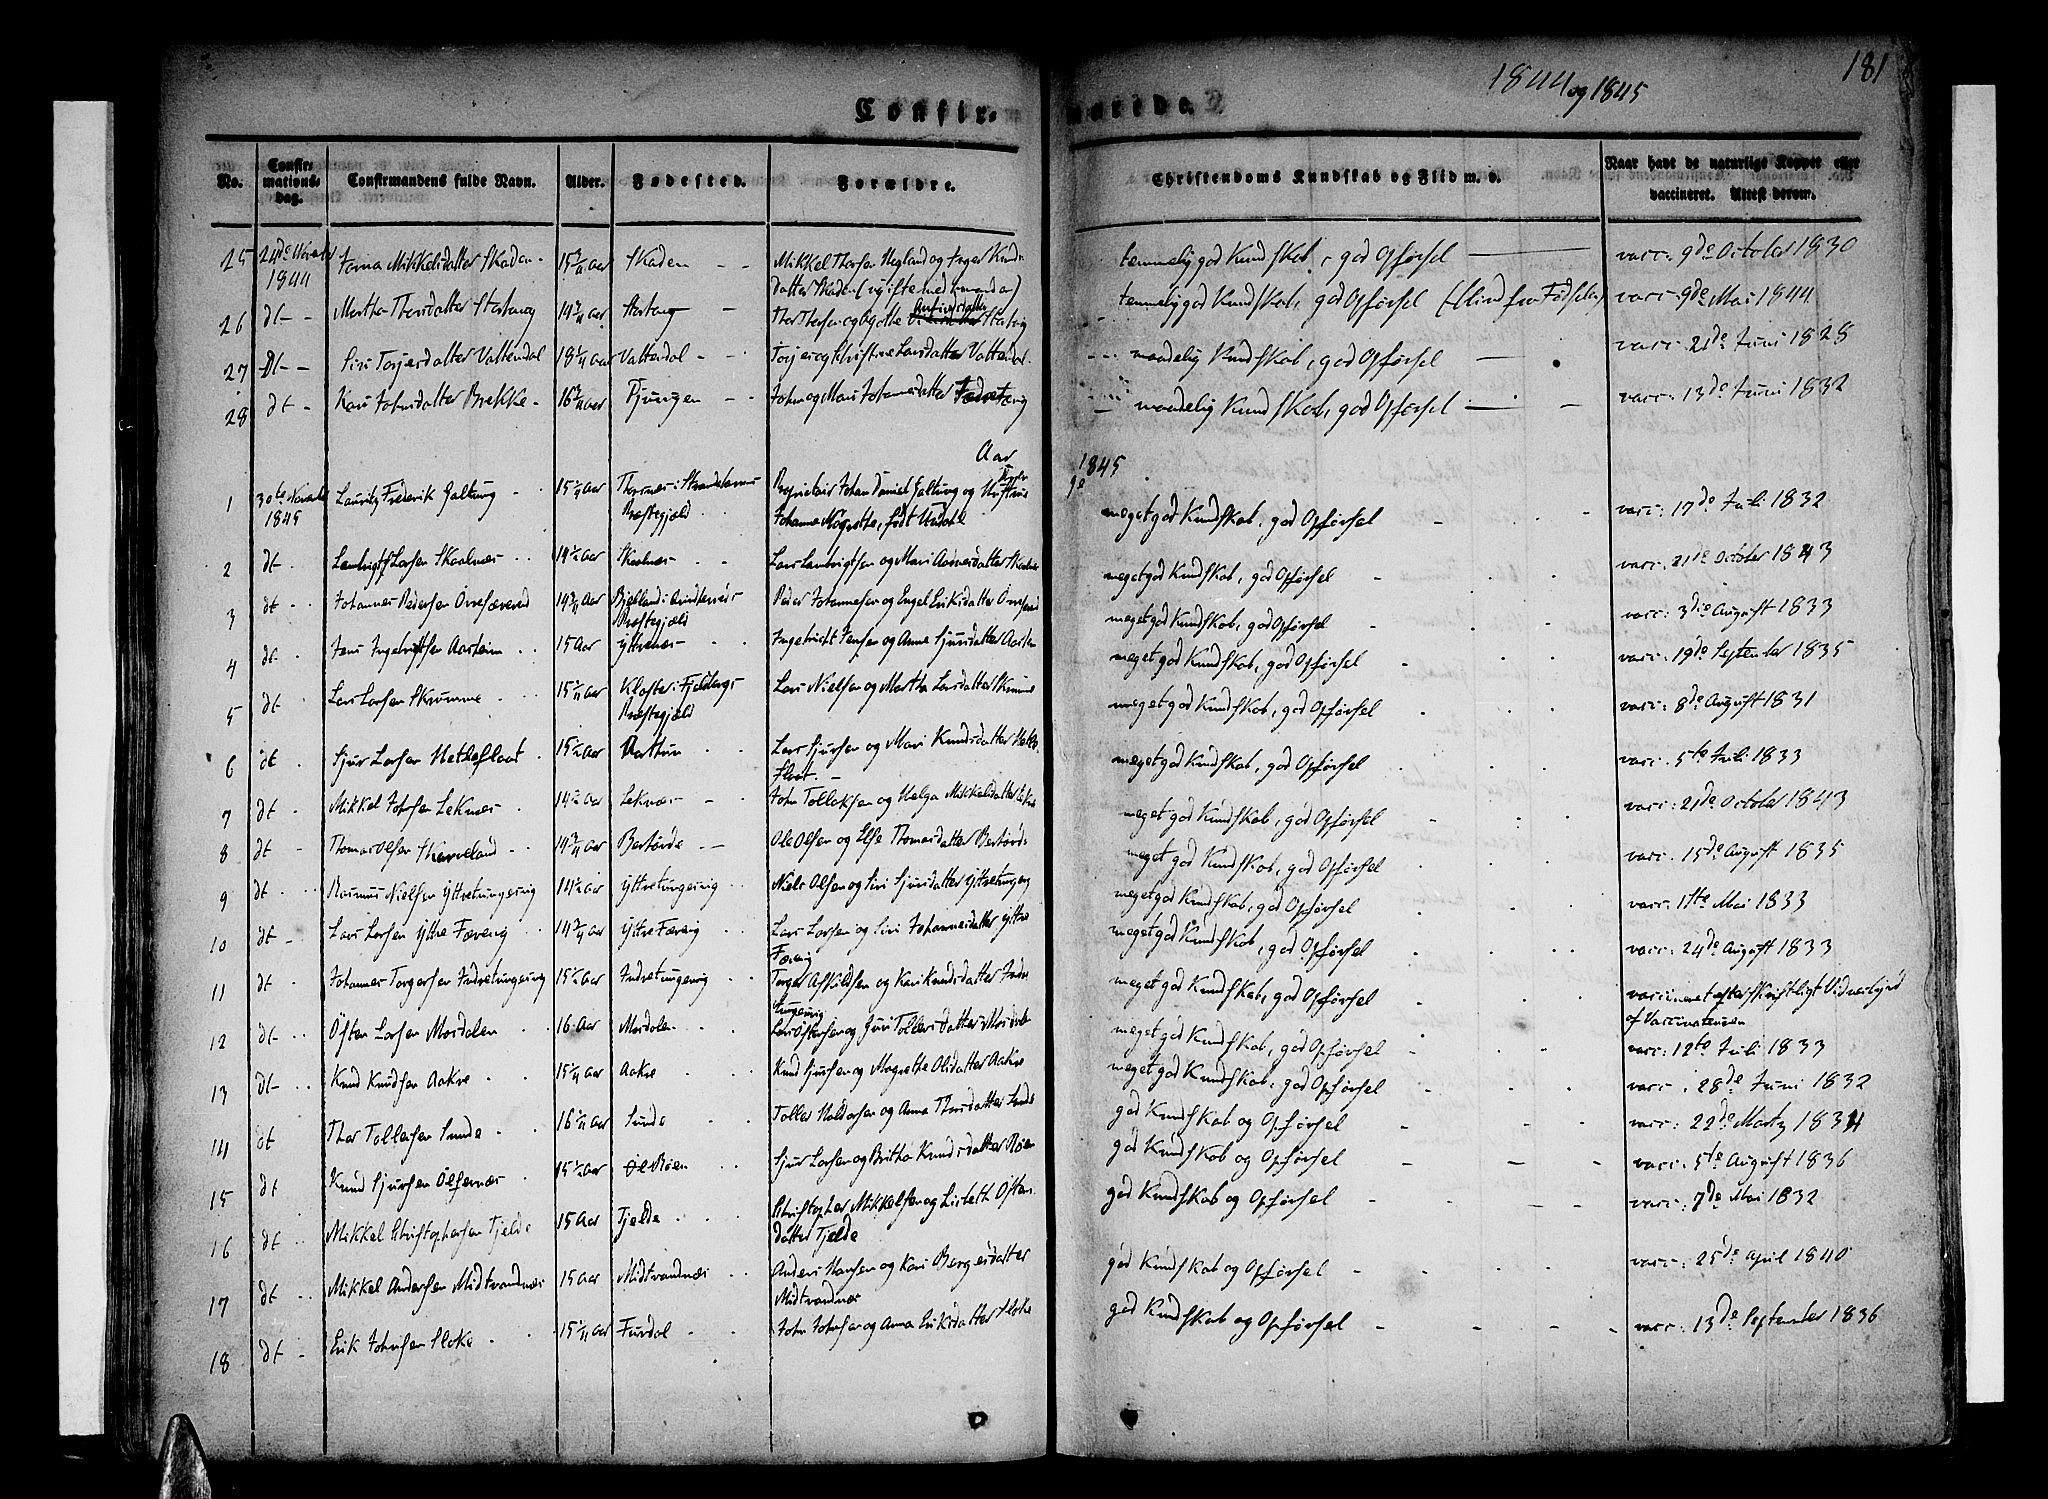 181
1844 og 1845
Confir-
merede.
No.
Confir-
mations-
dag.
Confirmandens fulde Navn.
Alder.
Fødested.
Forældre.
Christendoms Kundskab og Flid m. v.
Naar havt de naturlige Kopper eller
vaccineret. Attest derom.
25 24de Novbr 1844 Mikkelsdatter Skaden 15 Aar Skaden - - Mikkel Thorsen Hegland og Inger Knuds-
datter Skaden
temmelig god Kundskab, god Opførsel vacc: 9de October 1830
26 dt - Martha Thorsdatter 14 Aar Thor Thorsen og Agathe
temmelig god Kundskab, god Opførsel (blind fra Fødselen) vacc: 9de Mai 1844
27 dt - Siri Torjersdatter Vattendal 18 Aar Vattendal - - Torjer og Christine Larsdatter Vattendal
maadelig Kundskab, god Opførsel vacc: 21de Juni 1828
28 dt - Kari Johnsdatter Brekke - 16 Aar - - John og Mari Johannesdatter
maadelig Kundskab, god Opførsel vacc: 13de Juni 1832
Aar 1845
1 30te Novbr 1845 Lauritz Frederik Galtung 15 Aar i Strandebarms
Præstegjæld
Proprietair Johan Daniel Galtung og Hustrue
Johanne Magrethe, født
meget god Kundskab, god Opførsel vacc: 17de Juli 1832
2 dt Larsen Skaalnæs 14 Aar Skaalnæs Lars og Mari
meget god Kundskab, god Opførsel vacc: 21de October 1843
3 dt Johannes Pedersen 14 Aar Præstegjæld Peder Johannesen og Engel Eriksdatter
meget god Kundskab, god Opførsel vacc: 3die August 1833
4 dt Jens Aarheim 15 Aar Yttrenæs Jensen og Anne Sjursdatter
meget god Kundskab, god Opførsel vacc: 19de September 1835
5 dt Lars Larsen Skrumme 15 Aar Kloster i Fjeldbergs
Præstegjæld
Lars Nielsen og Martha Larsdatter
meget god Kundskab, god Opførsel vacc: 8de August 1831
6 dt Sjur Larsen Hetleflaat 15 Aar Lars Sjursen og Mari Knudsdatter Hetle-
flaat
meget god Kundskab, god Opførsel vacc: 5te Juli 1833
7 dt Mikkel Johnsen Leknæs 14 Aar Leknæs John Tollaksen og Helga Mikkelsdatter
meget god Kundskab, god Opførsel vacc: 21de October 1843
8 dt Thomas Olsen 14 Aar Ole Olsen og Else Thomasdatter
meget god Kundskab, god Opførsel vacc: 15de August 1835
9 dt Rasmus Nielsen Yttretungesvig 14 Aar Yttretungesvig Niels Olsen og Siri Sjursdatter Yttretungesvig
meget god Kundskab, god Opførsel vacc: 11te Mai 1833
10 dt Lars Larsen Yttre Færevig 14 Aar Yttre Færevig Lars Larsen og Siri Johannesdatter Yttre
Færevig
meget god Kundskab, god Opførsel vacc: 24de August 1833
11 dt Johannes Torgersen Indretungesvig 15 Aar Indretungesvig Torger Askildsen og Kari Knudsdatter Indre-
tungesvig
meget god Kundskab, god Opførsel vaccineret efter skriftligt Vidnesbyrd
af Vaccinateuren
12 dt Østen Larsen Mosdalen 16 Aar Mosdalen Lars Østensen og Guri Tollersdatter Mosdalen
meget god Kundskab, god Opførsel vacc: 12te Juli 1833
13 dt Knud Knudsen Aakre 15 Aar Aakre Knud Sjursen og Magrethe Olsdatter Aakre
meget god Kundskab, god Opførsel vacc: 28de Juni 1832
14 dt Thor Tollefsen Sunde 16 Aar Sunde Haldorsen og Anna Thorsdatter Sunde
god Kundskab og Opførsel vacc: 22de Martz 1834
15 dt Knud Sjursen Ølfernæs 15 Aar Sjur Larsen og Britha Knudsdatter Røen
god Kundskab og Opførsel vacc: 5te August 1836
16 dt Mikkel Christophersen Tjelde 15 Aar Tjelde Christopher Mikkelsen og Lisbeth Østens-
datter Tjelde
god Kundskab og Opførsel vacc: 7de Mai 1832
17 dt Mikkel Andersen Midtvandnæs 15 Aar Midtvandnæs Anders Hansen og Kari Bergesdatter
Midtvandnæs
god Kundskab og Opførsel vacc: 25de April 1840
18 dt Erik Johnsen Floke 15 Aar Furdal John Johnsen og Anna Eriksdatter Floke
god Kundskab og Opførsel vacc: 13de September 1836